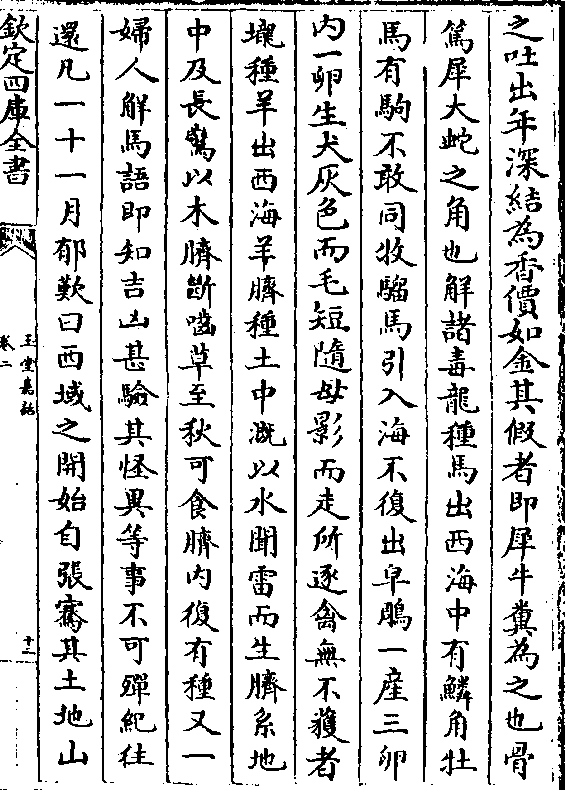 之吐出年深結為香價如金其假者即犀牛糞為之也骨
篤犀大蛇之角也解諸毒龍種馬出西海中有鱗角牡
馬有駒不敢同牧騮馬引入海不復出皁鵰一產三卵
内一卵生犬灰色而毛短隨母影而走所逐禽無不獲者
壠種羊出西海羊臍種土中溉以水聞雷而生臍系地
中及長驚以木臍斷囓草至秋可食臍内復有種又一
婦人解馬語即知吉凶甚驗其怪異等事不可殫紀往
還凡一十一月郁歎曰西域之開始自張騫其土地山
欽定四庫全書
玉堂嘉話
卷二
十二